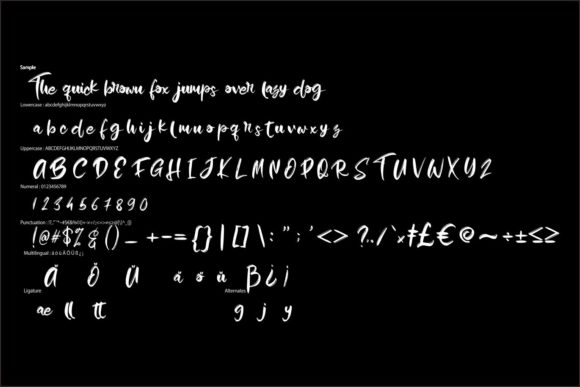 Sample
The quick brown fox jumps over lazy dog
Lowercase : abcdefghijklmnopqrstuvwxyz
a b c d e f g h i j k l m n o p q r s t u v w x y z
Uppercase : ABCDEFGHIJKLMNOPQRSTUVWXYZ
A B C D E F G H I J K L M N O P Q R S T U V W X Y Z
Numeral : 0123456789
1 2 3 4 5 6 7 8 9 0
Punctuation :
!@#$%&()_+-={}|[]\:";'<>?../`×ŧ£€@~÷±≤≥
Multilingual : ä ö ü Ä Ö Ü ß ¿ ¡
Ä Ö Ü ä ö ü β ¿ ¡
Ligature Alternates
ae ll tt g j y